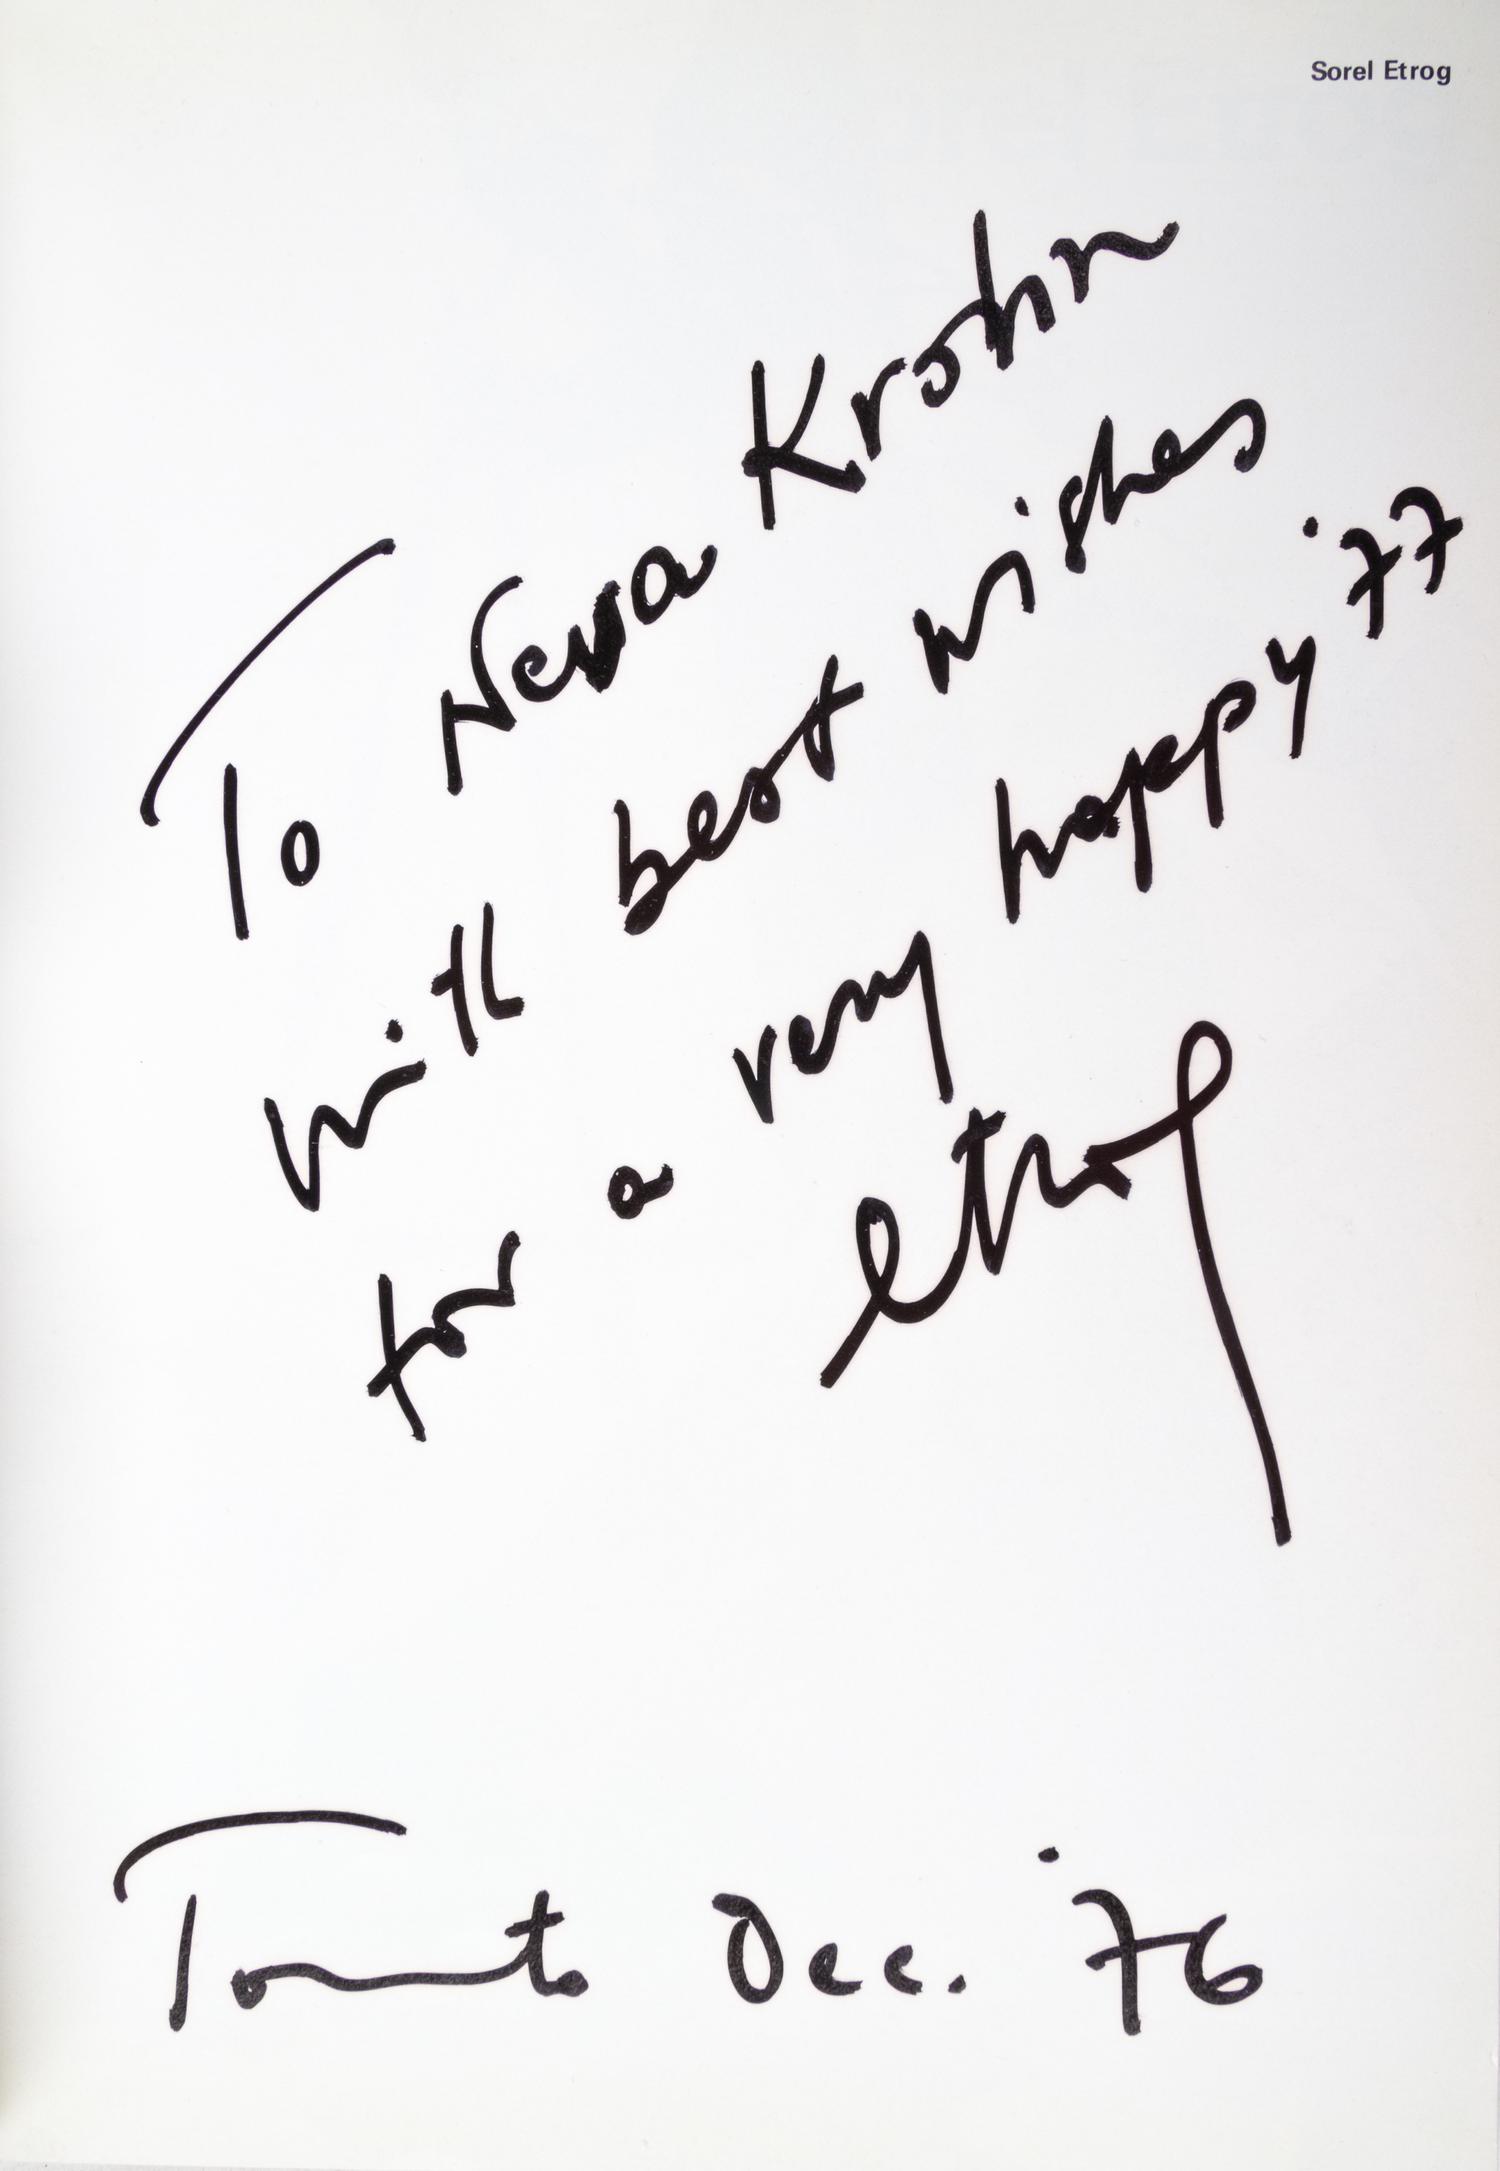 Sorel Etrog
To Neva Krohn
With best wishes
for a very happy '77
etrog
Toronto Dec. '76